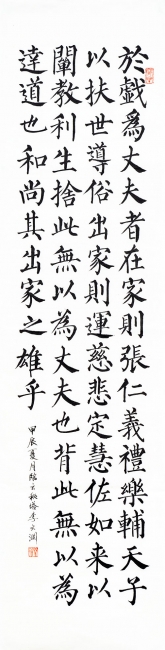 於戲爲丈夫者在家則張仁義禮樂輔天子
以扶世導俗出家則運慈悲定慧佐如来以
闡教利生捨此無以為丈夫也背此無以為
達道也和尚其出家之雄乎
甲辰夏月臨玄秘塔李文淵